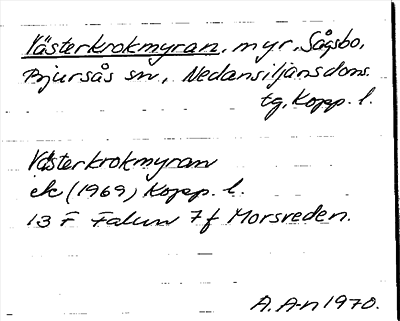 Västerkrokmyran, myr, Sågsbo,
Bjursås sn, Nedansiljans doms.
tg, Kopp. l.
Västerkrokmyran
ek (1969) Kopp. l.
13 F Falun 7f Morsveden.
A. A-n 1970.